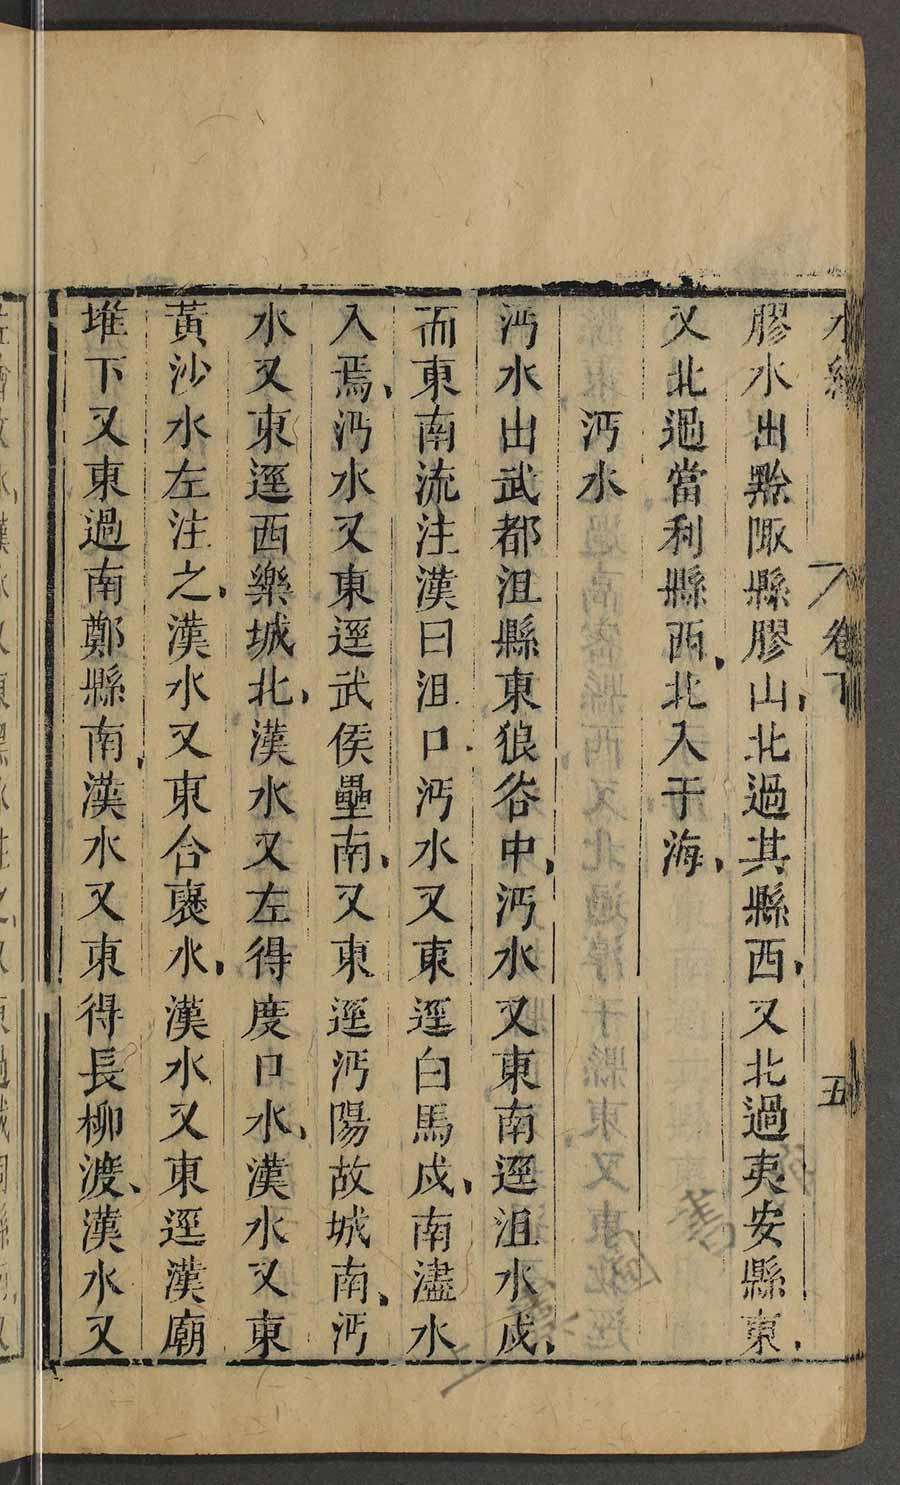 水經　卷下　五
膠水出黔陬縣膠山北過其縣西又北過夷安縣東
又北過當利縣西北入于海
沔水
沔水出武都沮縣東狼谷中沔水又東南逕沮水戍
而東南流注漢曰沮口沔水又東逕白馬戍南濜水
入焉沔水又東逕武侯壘南又東逕沔陽故城南沔
水又東逕西樂城北漢水又左得度口水漢水又東
黃沙水左注之漢水又東合襃水漢水又東逕漢廟
堆下又東過南鄭縣南漢水又東得長柳渡漢水又